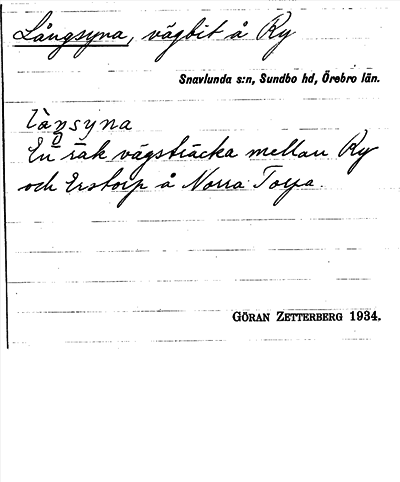 Långsyna, vägbit å Ry
Snavlunda s:n, Sundbo hd, Örebro län.
En rak vägsträcka mellan Ry
och Erstorp å Norra Torpa.
GÖRAN ZETTERBERG 1934.